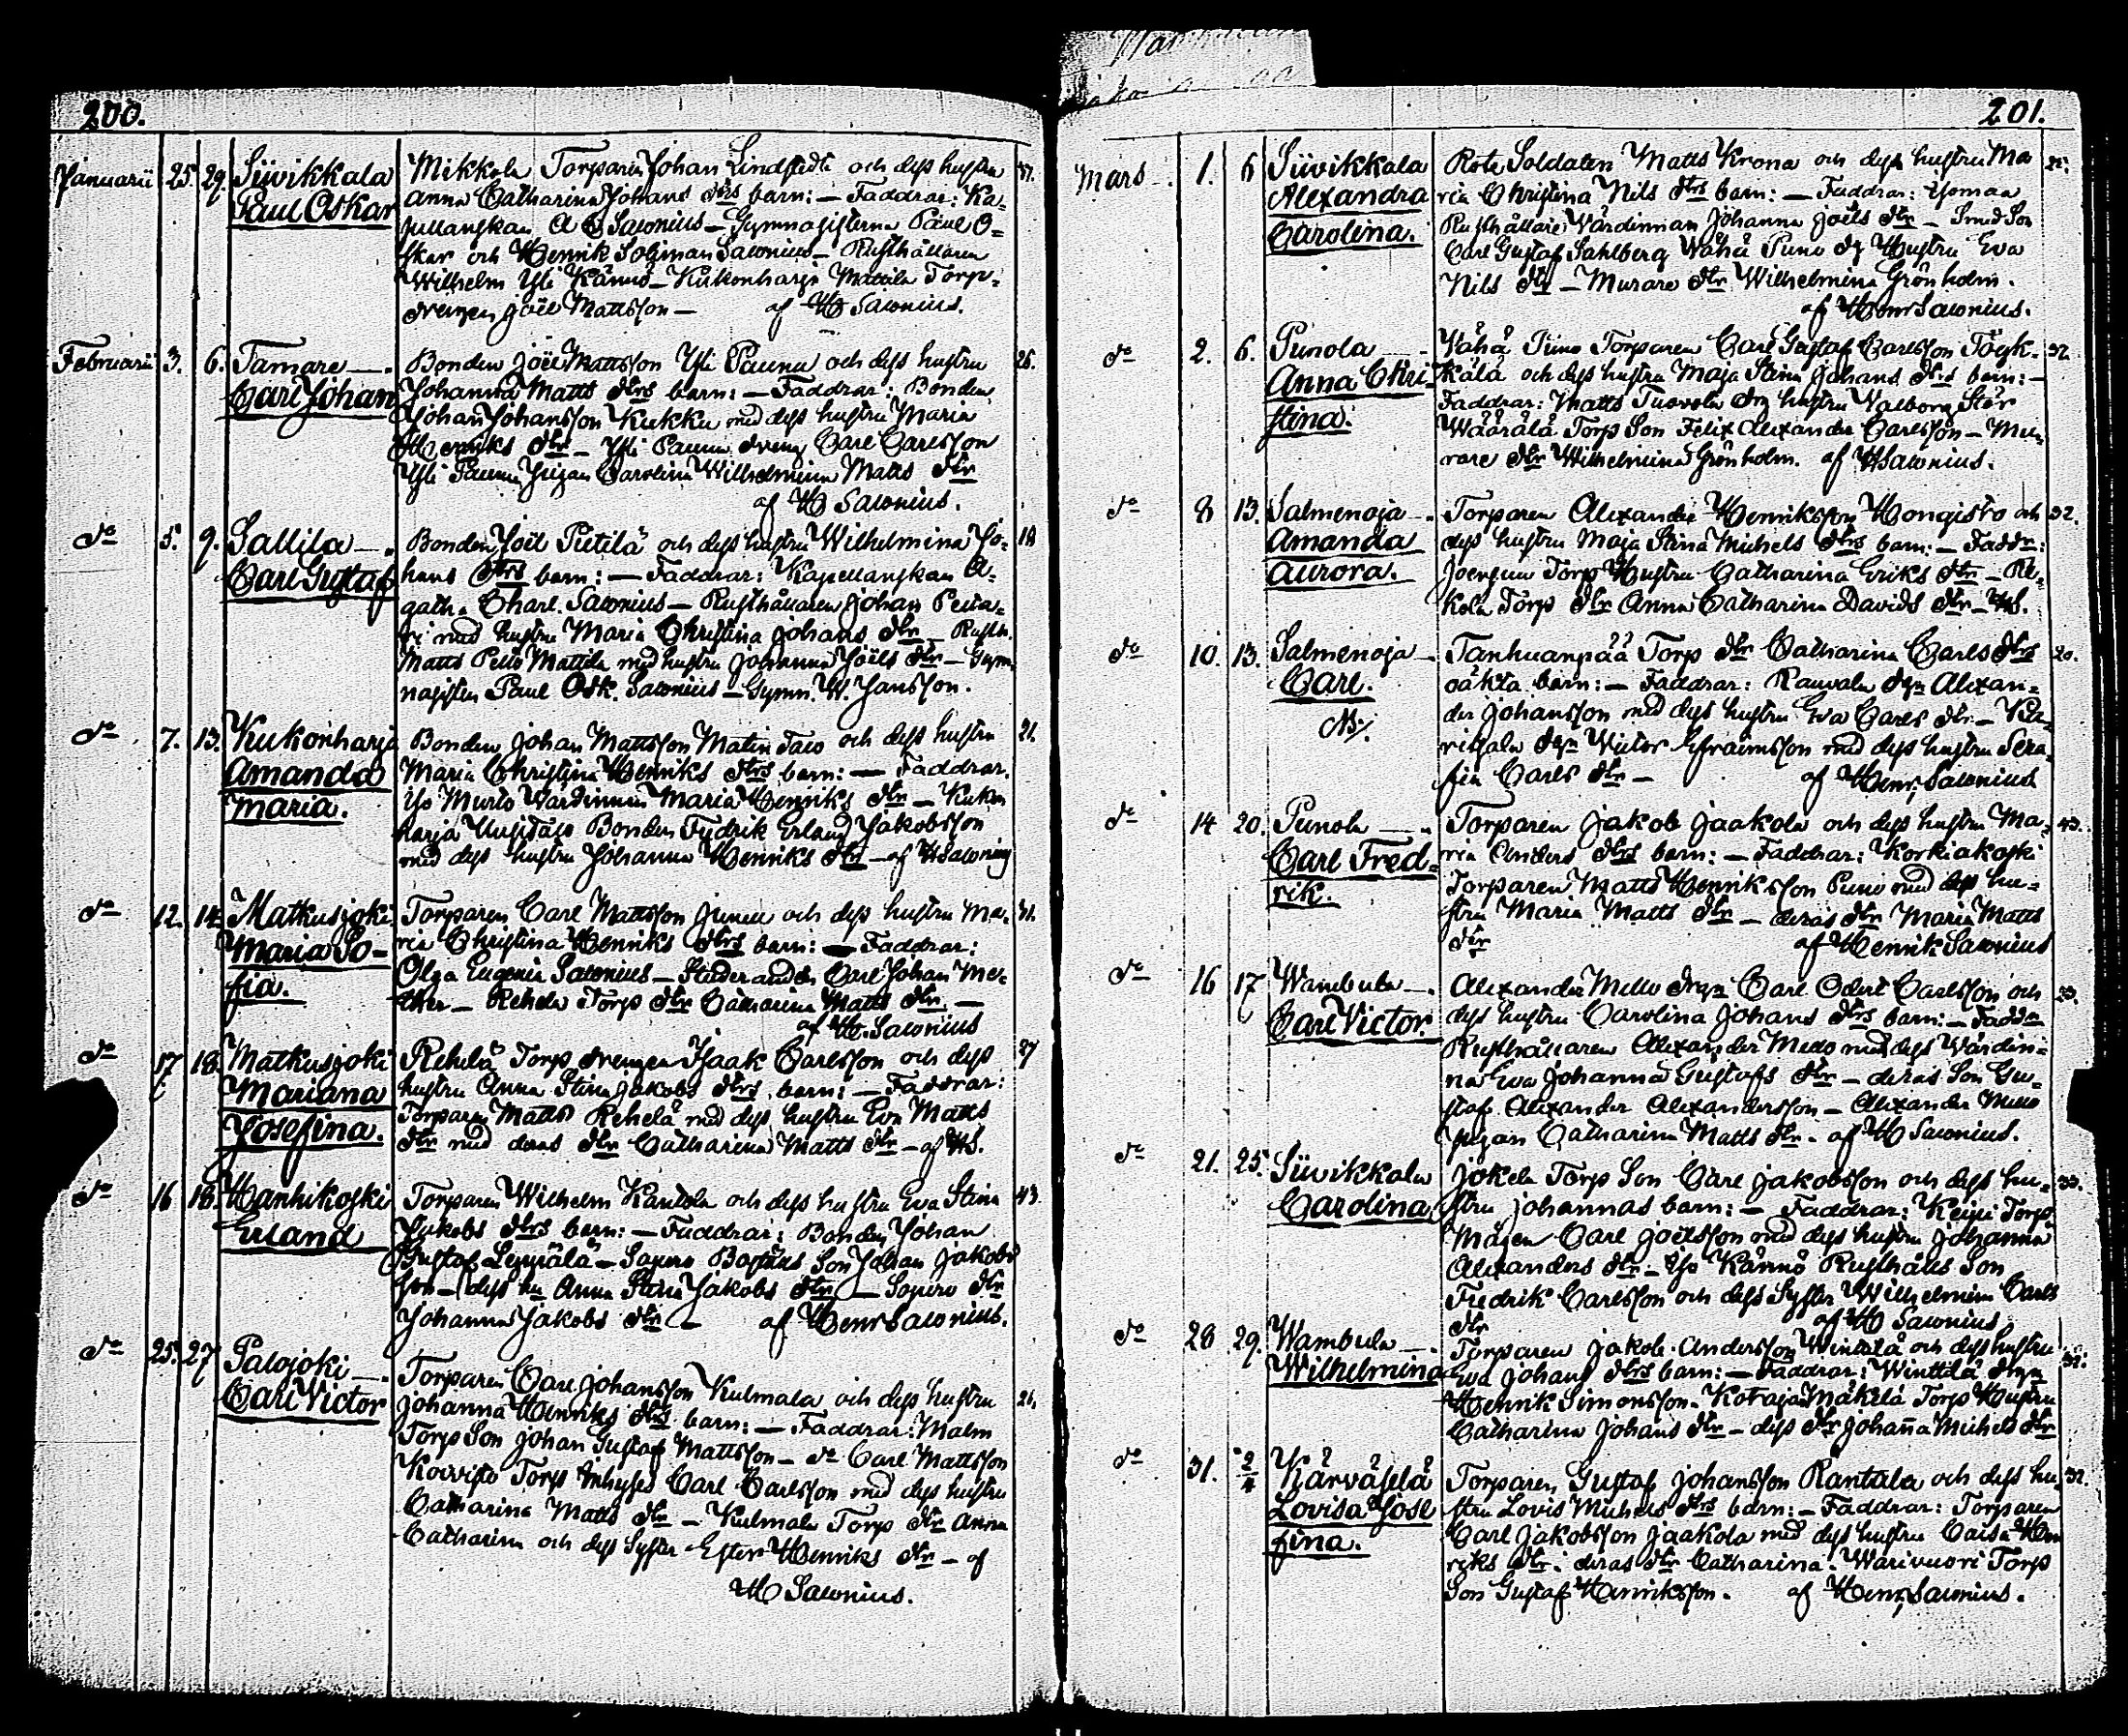 200.
Januarii 25. 29. Siivikkala Mikkola Torparen Johan Lindstedt och dess hustru 37.
Paul Oskar Anna Catharina Johans dtrs barn: — Faddrar: Ka-
pellanskan A C Salonius — Gymnasisterna Paul O-
skar och Henrik Soliman Salonius — Rusthållaren
Wilhelm Yli Kännö — Kukonharja Mattila Torp-
drengen Joël Mattsson — af H Salonius.
Februarii 3. 6. Tamare —. Bonden Joël Mattsson Yli Paunu och dess hustru 26.
Carl Johan Johanna Matts dtrs barn: — Faddrar: Bonden
Johan Johansson Kukku med dess hustru Maria
Henriks dtr — Yli Paunu dreng Carl Carlsson
Yli Paunu Pigan Carolina Wilhelmina Matts dtr
af H Salonius.
do 5. 9. Sallila —. Bonden Joël Pietilä och dess hustru Wilhelmina Jo- 19
Carl Gustaf hans dtrs barn: — Faddrar: Kapellanskan A-
gatha Charl. Salonius — Rusthållaren Johan
med hustru Maria Christina Johans dtr — Rusth.
Matts Pelto Mattila med hustru Johanna Joëls dtr — Gym-
nasisten Paul Osk. Salonius — Gymn. W. Jansson.
do 7. 13. Kukonharja Bonden Johan Mattsson Matin Talo och dess hustru 21.
Amanda Maria Christina Henriks dtrs barn: — Faddrar.
Maria. Iso Murto Wärdinnan Maria Henriks dtr — Kukon
harja Uusitalo Bonden Fredrik Erland Jakobsson
med dess hustru Johanna Henriks dtr — af H Salonius
do 12. 14. Matkusjoki Torparen Carl Mattsson Junell och dess hustru Ma- 31.
Maria So- ria Christina Henriks dtrs barn: — Faddrar:
fia. Olga Eugenia Salonius — Studeranden Carl Johan Me-
— Rehelä Torp dtr Catharina Matts dtr. —
af H. Salonius
do 17 18. Matkusjoki Rehelä Torp drengen Isaak Carlsson och dess 27
Mariana hustru Anna Stina Jakobs dtrs barn: — Faddrar:
Josefina. Torparen Matts Rehelä med dess hustru Eva Matts
dtr med deras dtr Catharina Matts dtr — af HS.
do 16 18. Hanhikoski Torparen Wilhelm Kantola och dess hustru Eva Stina 43.
Erland Jakobs dtrs barn: — Faddrar: Bonden Johan
Gustaf Leppälä — Son Johan Jakobs
son — dess hu Anna Stina Jakobs dtr — dtr
Johanna Jakobs dtr — af Henr Salonius.
do 25. 27 Palojoki —. Torparen Carl Johansson Kulmala och dess hustru 26.
Carl Victor Johanna Henriks dtrs barn: — Faddrar: Malm
Torp Son Johan Gustaf Mattsson — do Carl Mattsson
Koivisto Torp Inhyses Carl Carlsson med dess hustru
Catharina Matts dtr — Kulmala Torp dtr Anna
Catharina och dess Syster Ester Henriks dtr — af
H Salonius.
201.
Mars —. 1. 6 Siivikkala Rote Soldaten Matts Krona och dess hustru Ma 25.
Alexandra ria Christina Nils dtrs barn: — Faddrar:
Carolina. Rusthållare Wärdinnan Johanna Joëls dtr — Smed Son
Carl Gustaf Sahlberg Wähä Puno dg Hustru Eva
Nils dtr — Murare dtr Wilhelmina Grönholm.
af Henr Salonius.
do 2. 6. Punola —. Wähä Puno Torparen Carl Gustaf Carlsson 32.
Anna Chri- och dess hustru Maja Stina Johans dtrs barn: —
stina. Faddrar: Matts Tuovola drg hustru Walborg Stör
Wäärälä Torp Son Felix Alexander Carlsson — Mu-
rare dtr Wilhelmina Grönholm. af H Salonius.
do 8 13. Salmenoja —. Torparen Alexander Henriksson Hongisto och 32.
Amanda dess hustru Maja Stina Michels dtrs barn: — Faddr:
Aurora. Torp Hustru Catharina Eriks dtr —
kola Torp dtr Anna Catharina Davids dtr — HS.
do 10. 13. Salmenoja —. Tanhuanpää Torp dtr Catharina Carls dtrs 20.
Carl. oäkta barn: — Faddrar: Rauvala dgn Alexan-
der Johansson med dess hustru Eva Carls dtr —
dgn Wictor Efraimsson med dess hustru Sera-
fia Carls dtr — af Henr, Salonius
do 14 20. Punola —. Torparen Jakob Jaakola och dess hustru Ma- 43.
Carl Fred- ria Anders dtrs barn: — Faddrar: Korkiakoski
rik. Torparen Matts Henriksson Puno med dess hu-
stru Maria Matts dtr — deras dtr Maria Matts
dtr af Henrik Salonius
do 16 17 Wambula —. Alexander Mello drgn Carl Edert Carlsson och 23.
Carl Victor. dess hustru Carolina Johans dtrs barn: — Faddr
Rusthållaren Alexander Mello med dess Wärdin-
na Eva Johanna Gustafs dtr — deras Son Gu-
staf Alexander Alexandersson — Alexander Mello
pigan Catharina Matts dtr. af H Salonius.
do 21. 25. Siivikkala Jokela Torp Son Carl Jakobsson och dess hu- 33.
Carolina stru Johannas barn: — Faddrar: Torp
Mågen Carl Joëlsson med dess hustru Johanna
Alexanders dtr — Yso Kännö Rusthålls Son
Fredrik Carlsson och dess Syster Wilhelmina Carls
dtr af H Salonius
do 28 29. Wambula —. Torparen Jakob Andersson Winttilä och dess hustru 32.
Wilhelmina Eva Johans dtrs barn: — Faddrar: Winttilä drgn
Henrik Simonsson. Kotaja Mäkelä Torp Hustru
Catharina Johans dtr — dess dtr Johanna Michels dtr
do 31. 2/4 Kärväselä Torparen Gustaf Johansson Rantala och dess hu- 32.
Lovisa Jose stru Lovis Michels dtrs barn: — Faddrar: Torparen
fina. Carl Jakobsson Jaakola med dess hustru Caisa Hen
riks dtr: deras dtr Catharina. Warivuori Torp
Son Gustaf Henriksson. af Henr, Salonius.